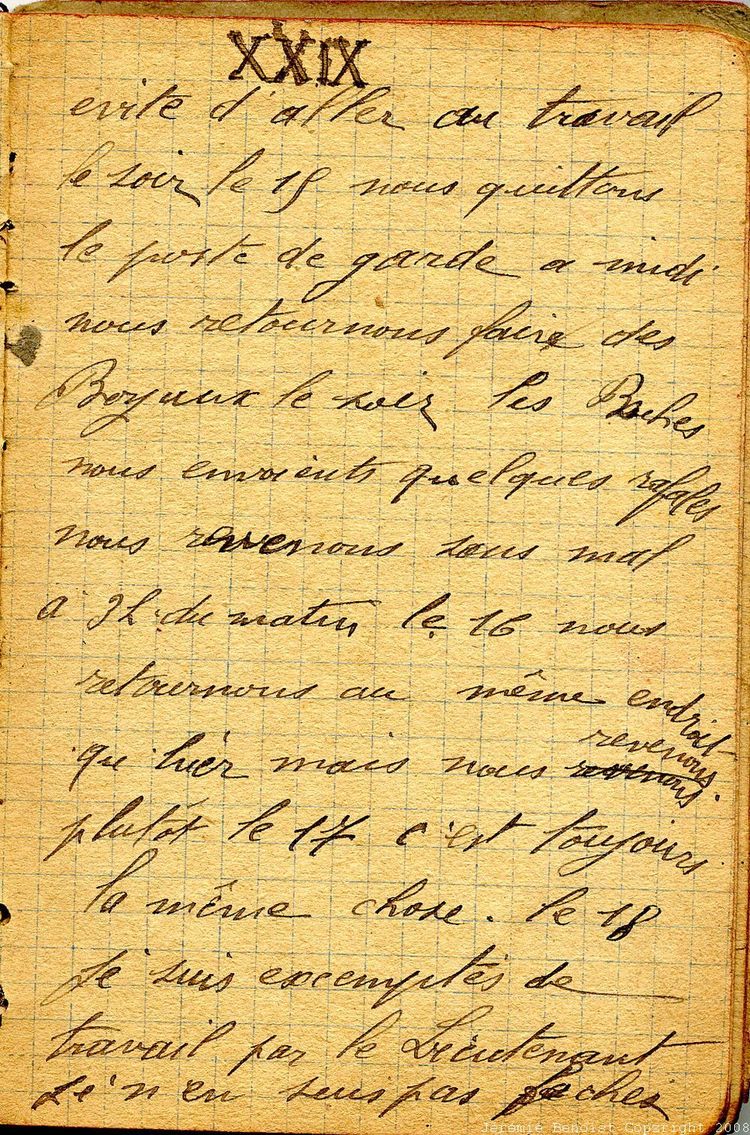 XXIX
evite d'aller au travail
le soir le 15 nous quittons
le poste de garde a midi
nous retournous faire des
Boyaux le soir les Boches
nous envoients quelques rafales
nous revenous sans mal
a 3h du matin le 16 nous
retournous au même endroit
qu'hier mais nous revenous
plutôt le 17 c'est toujours
la même chose. le 18
je suis excemptés de
travail par le Lieutenant
je n'en suis pas fachés
Jeremie Benoist Copyright 2008